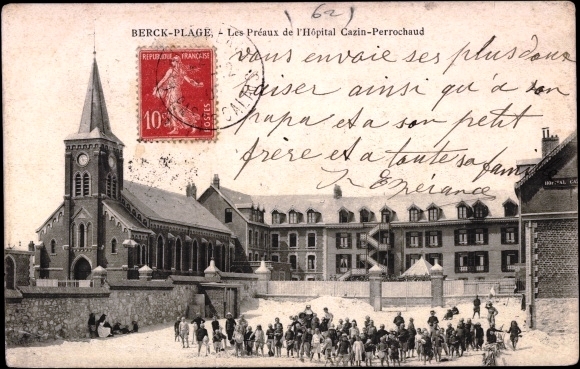 (62)
BERCK-PLAGE. - Les Préaux de l'Hôpital Cazin-Perrochaud
RÉPUBLIQUE FRANÇAISE
10c POSTES
CALAIS
vous envoie ses plus doux
baiser ainsi qu'à son
papa et a son petit
frère et a toute sa famille
Espérance
HOPITAL CA